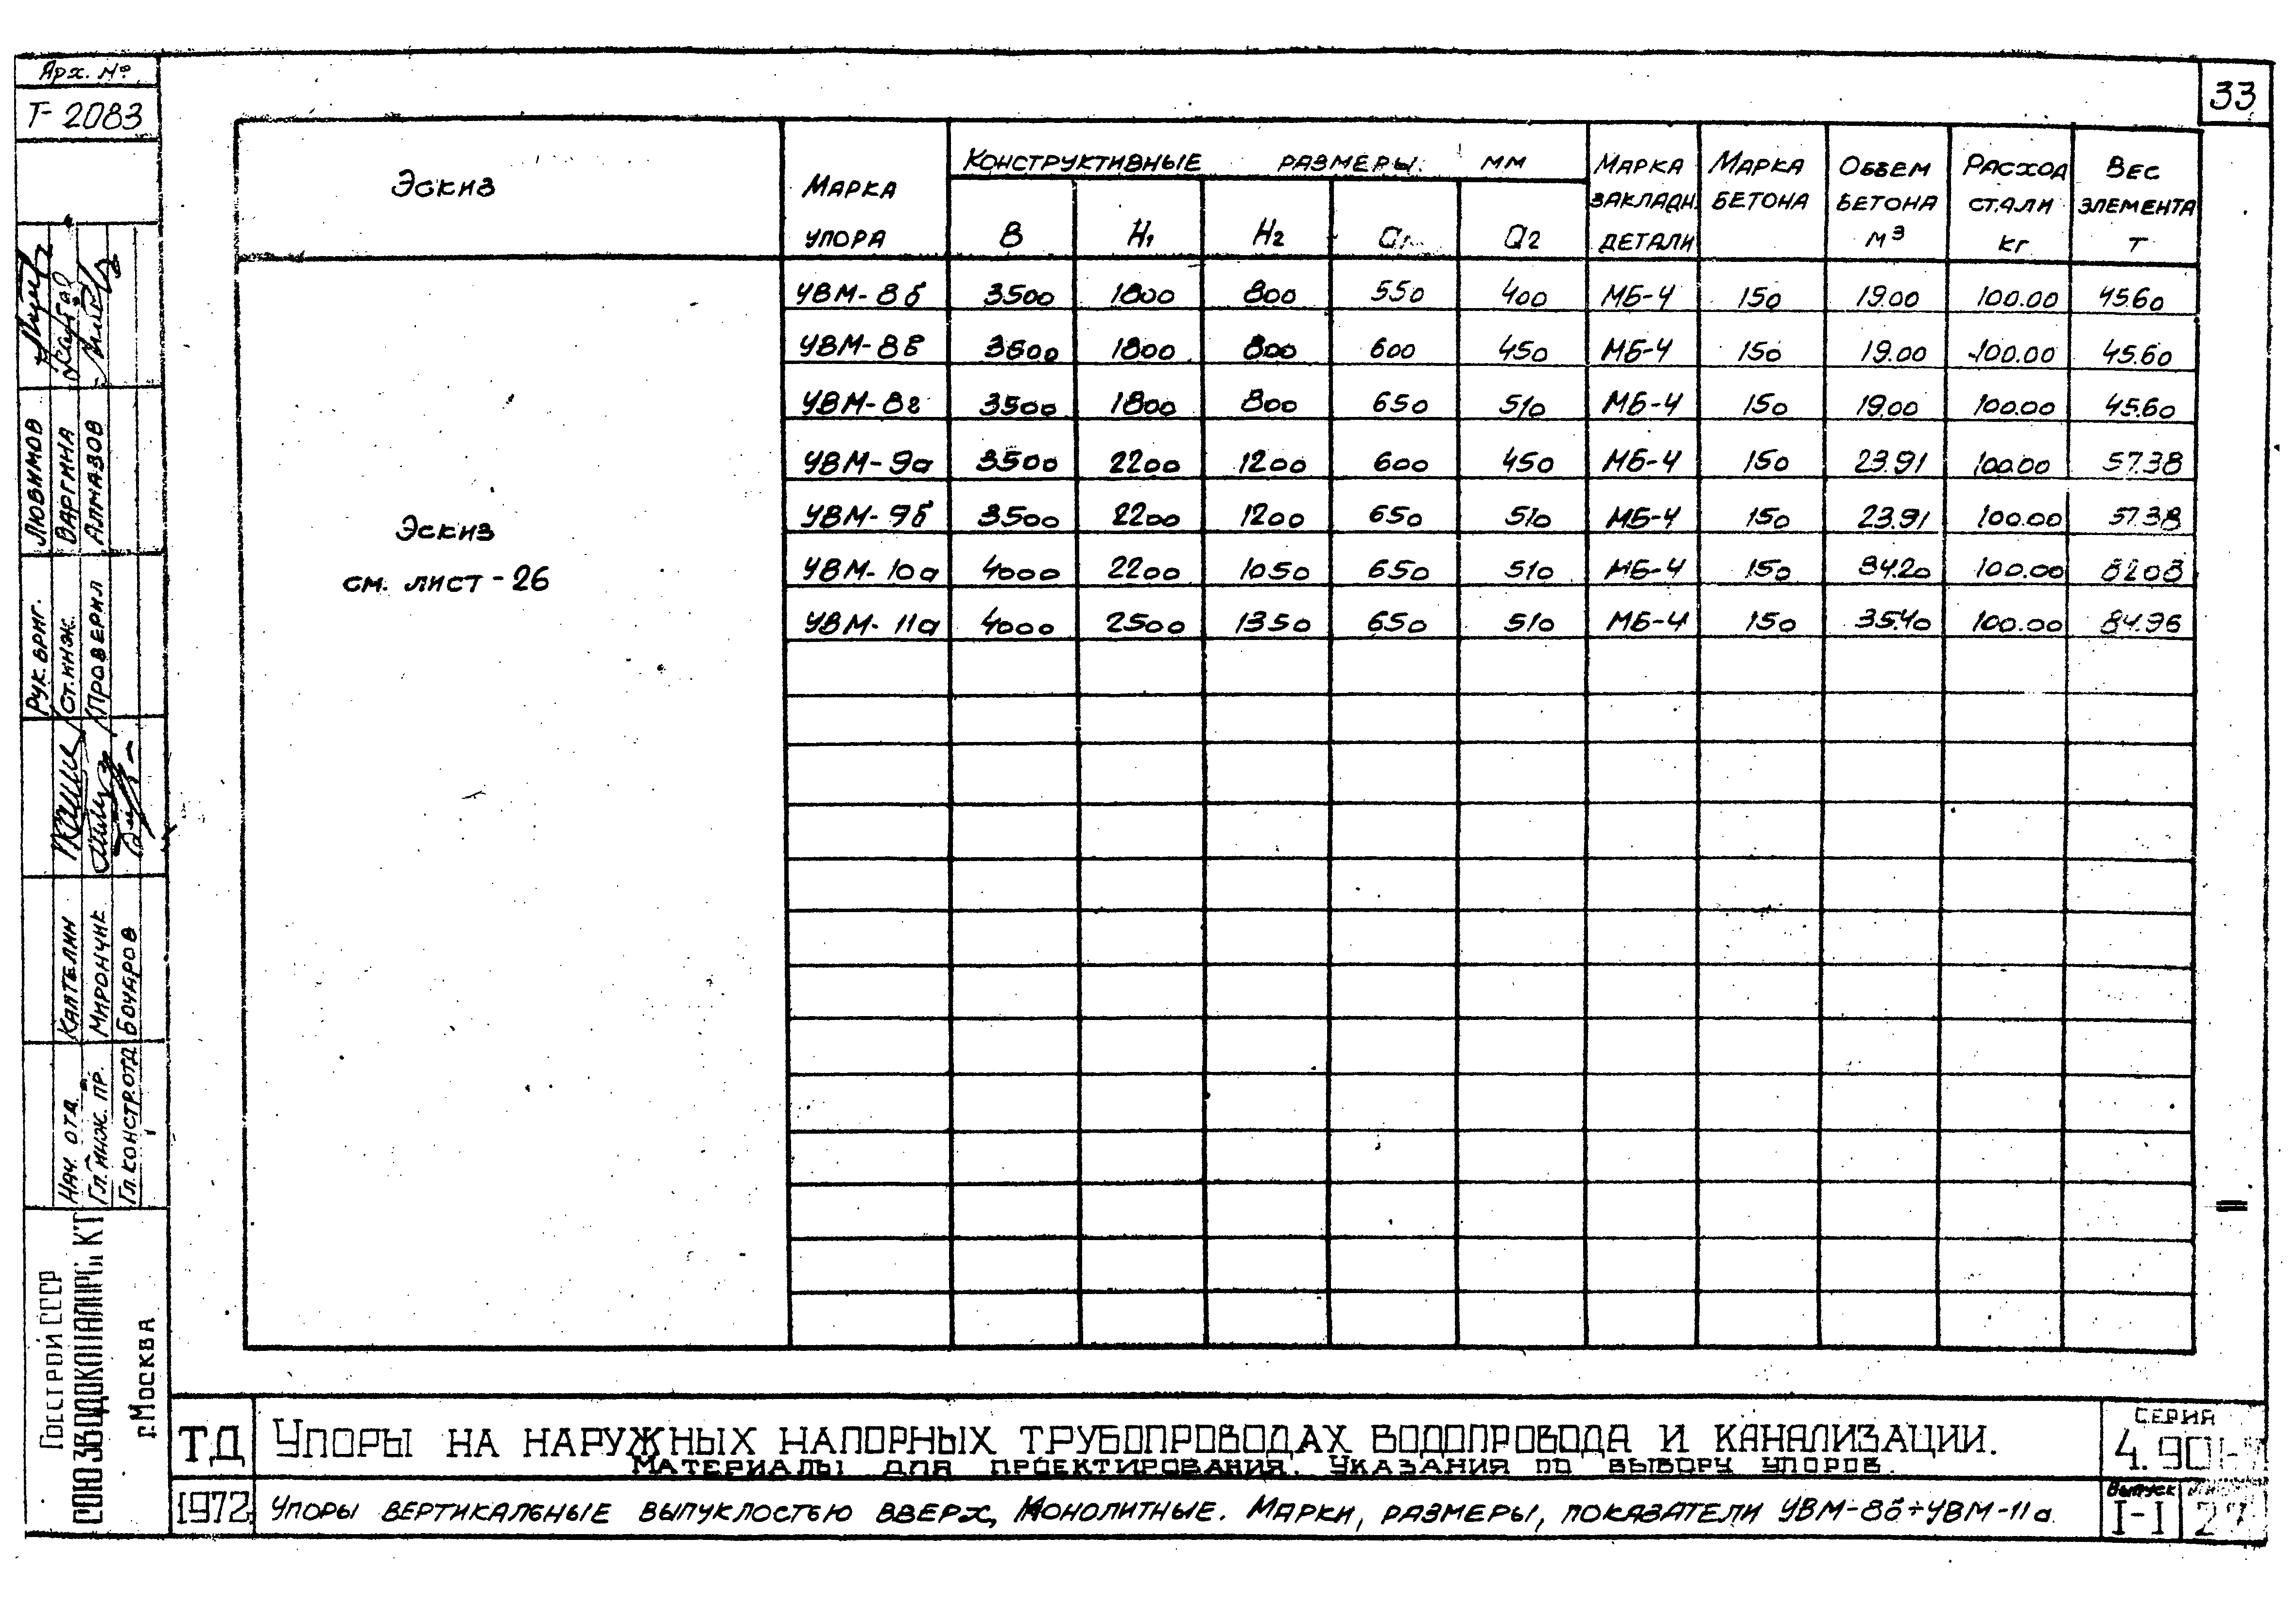 Арх. №
Т-2083
33
Эскиз
Марка упора
Конструктивные размеры мм
B H₁ H₂ a₁ a₂
Марка закладн. детали
Марка бетона
Объем бетона м³
Расход стали кг
Вес элемента т
УВМ-8б 3500 1800 800 550 400 МБ-4 150 19.00 100.00 45.60
УВМ-8в 3500 1800 800 600 450 МБ-4 150 19.00 100.00 45.60
УВМ-8г 3500 1800 800 650 510 МБ-4 150 19.00 100.00 45.60
УВМ-9а 3500 2200 1200 600 450 МБ-4 150 23.91 100.00 57.38
УВМ-9б 3500 2200 1200 650 510 МБ-4 150 23.91 100.00 57.38
УВМ-10а 4000 2200 1050 650 510 МБ-4 150 34.20 100.00 82.08
УВМ-11а 4000 2500 1350 650 510 МБ-4 150 35.40 100.00 84.96
Эскиз
см. лист-26
Рук. бриг. Любимов
Ст. инж. Варгина
Проверил Алмазов
Нач. отд. Каптелин
Гл. инж. пр. Мирончик
Гл. констр. отд Бочаров
Госстрой СССР
г. Москва
ТД
Упоры на наружных напорных трубопроводах водопровода и канализации.
Материалы для проектирования. Указания по выбору упоров.
1972
Упоры вертикальные выпуклостью вверх, монолитные. Марки, размеры, показатели УВМ-8б÷УВМ-11а
Серия
4.901-
Выпуск
I-I
27